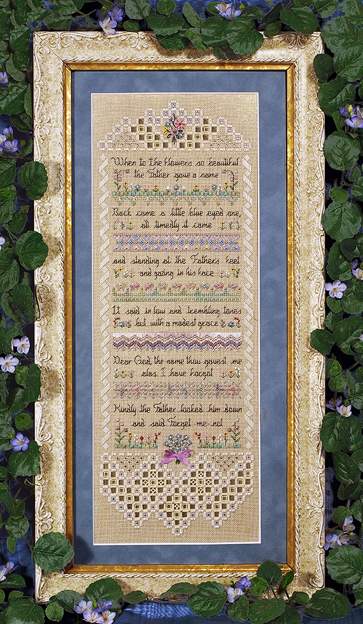 When to the flowers so beautiful
the Father gave a name
Back came a little blue eyed one
all timedly it came
and standing at the Fathers feet
and gazing in his face
It said in low and trembling tones
but with a modest grace
Dear God, the name thou gavest me
alas I have forgot
Kindly the Father looked him down
and said Forget me not